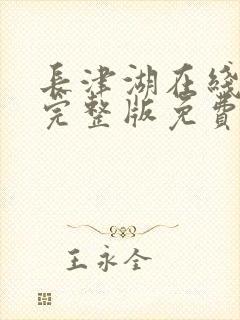 長津湖在綫
完整版免費
王永全